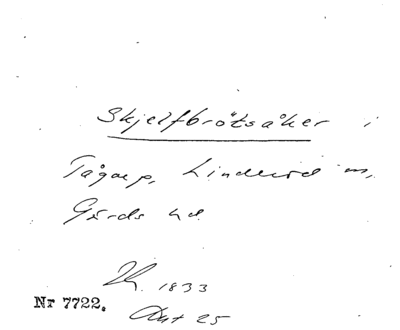 Skjelfbrötsåker i
Tågarp, Linderöd sn,
Gärds hd.
1833
Akt 25
Nr 7722.